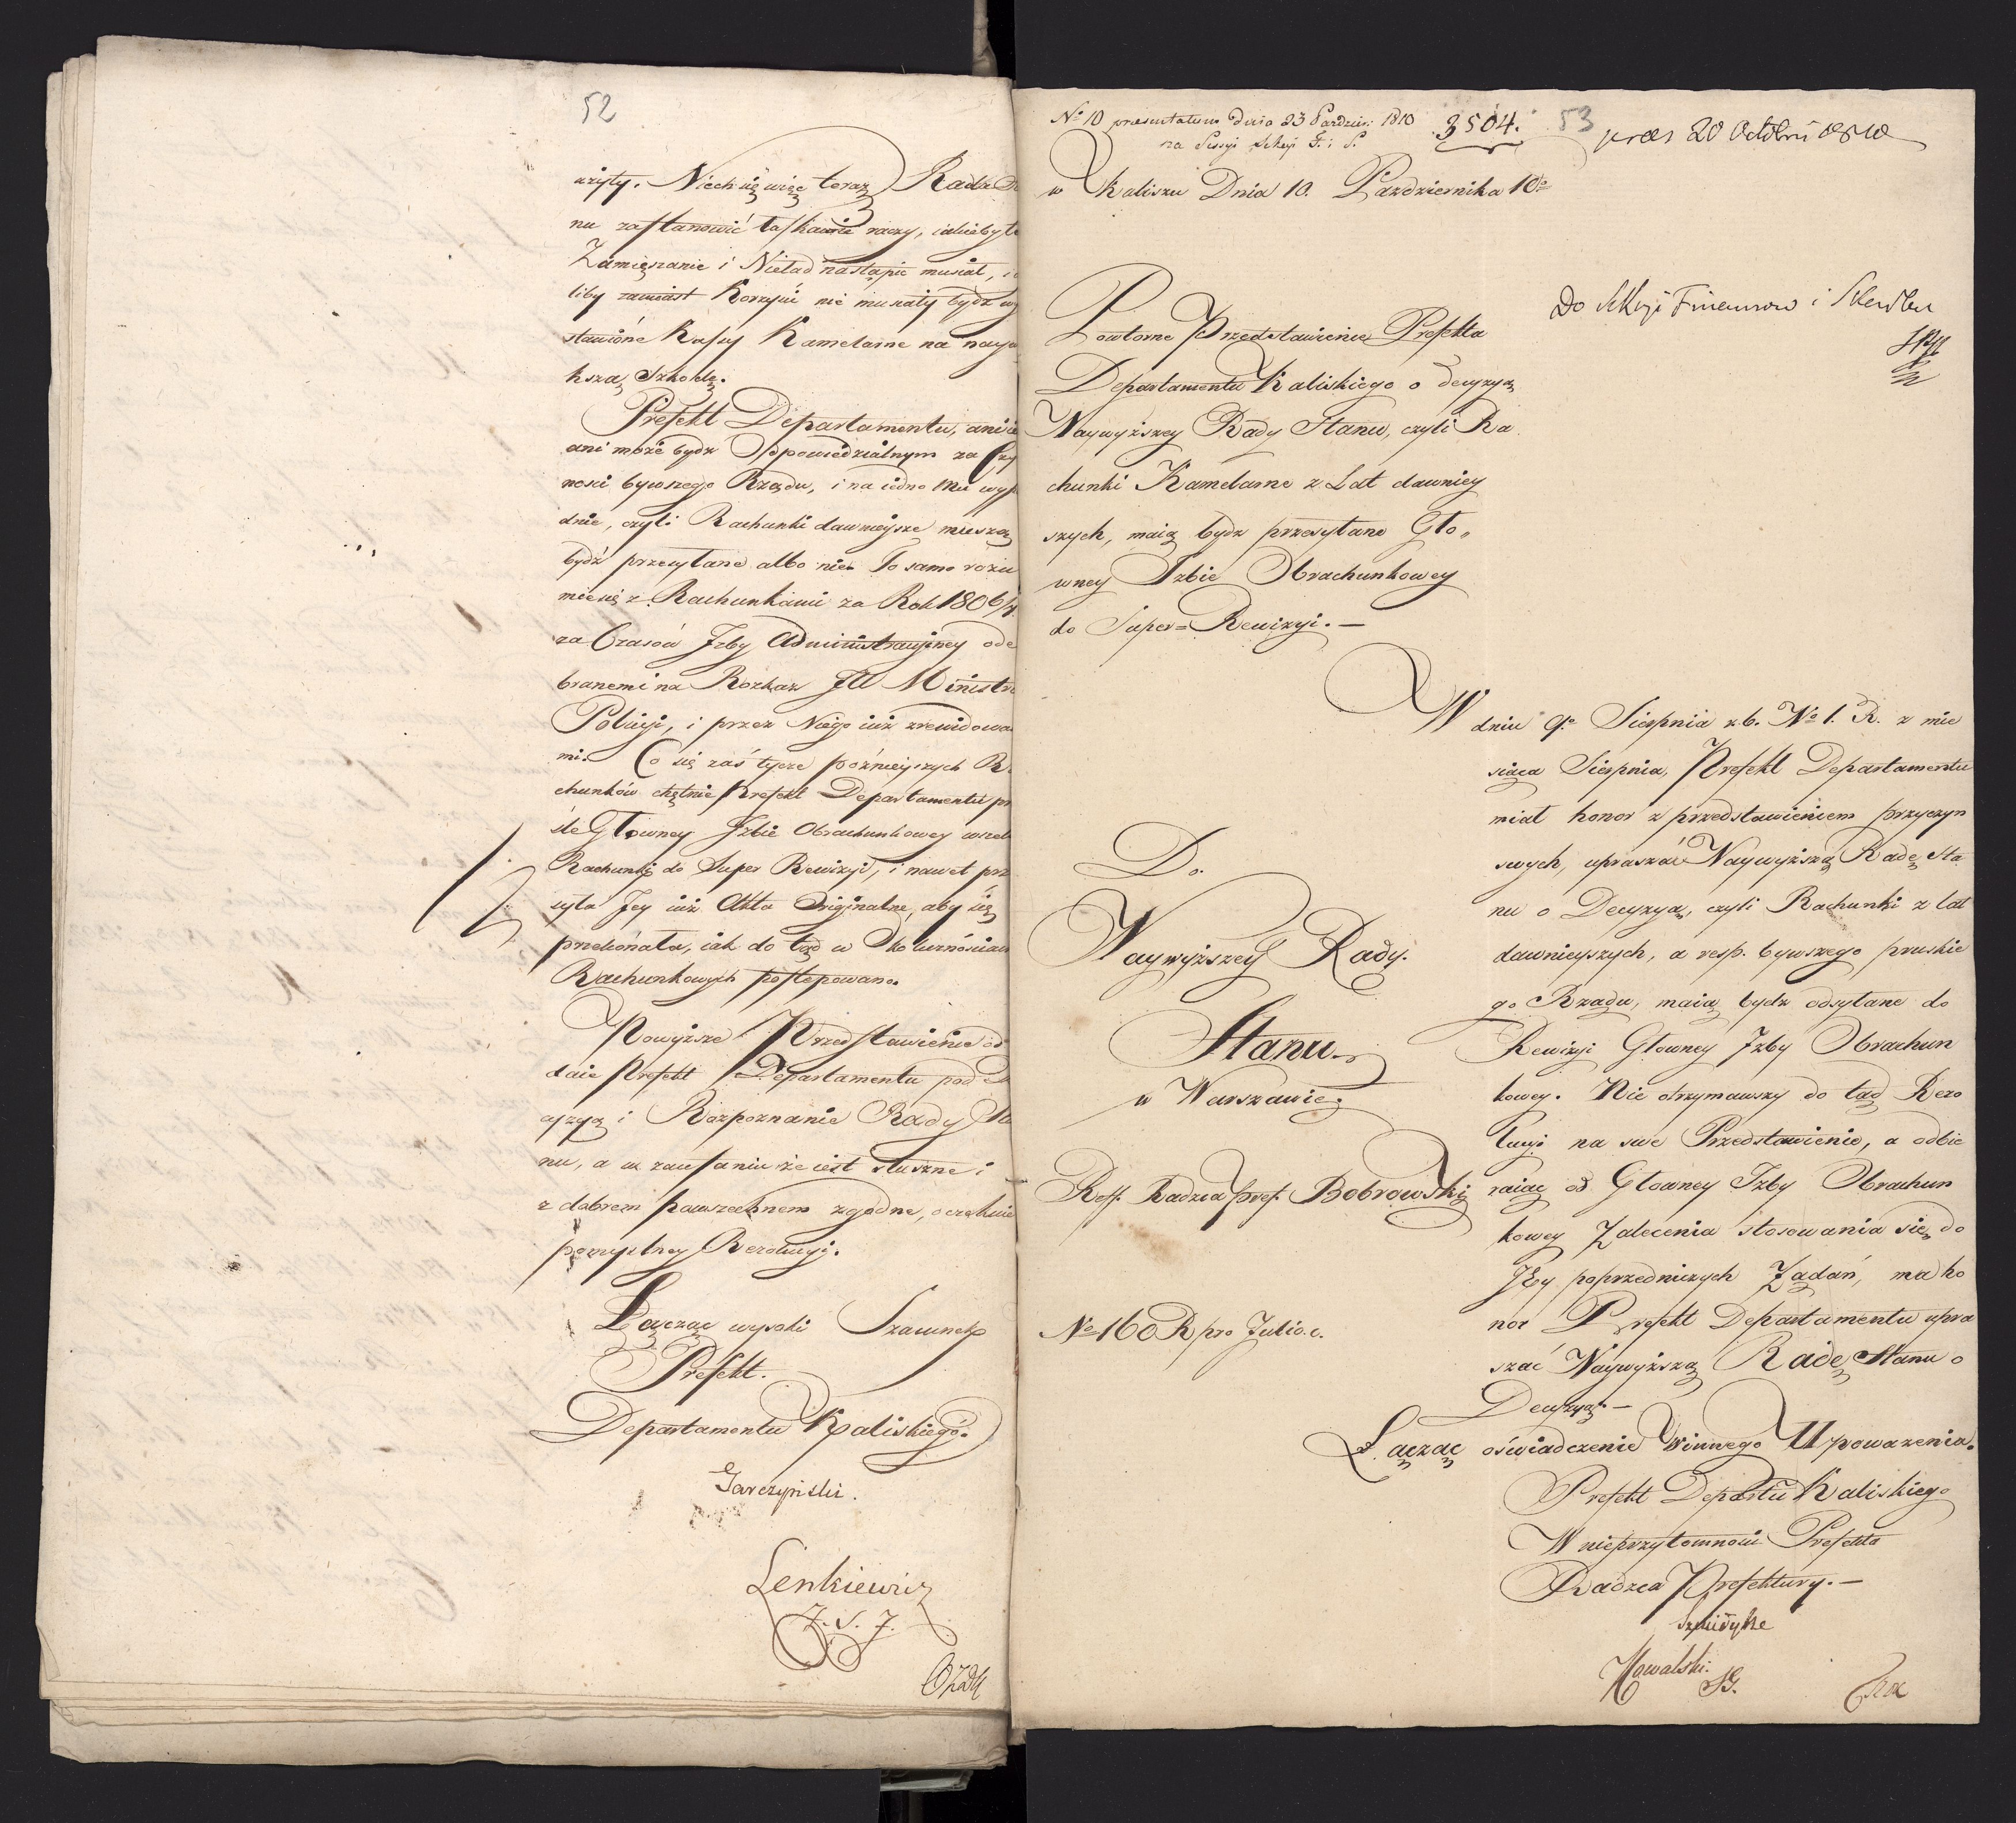 52
Niech się więc teraz Rada
nu zastanowić łaskawie raczy, iakieby
Zamięszanie i Nieład nastąpić musiał,
liby zamiast Korzyści nie musiały bydź
stawióne Kassy Kamelarne na nay
kszą Szkodę.
Prefekt Departamentu, ani
ani może bydź Odpowiedzialnym za
ności bywszego Rządu, i na iedno Mu wypa
dnie, czyli Rachunki dawnieysze muszą
bydź przesyłane albo nie. To samo rozu
mie się z Rachunkami za Rok 1806/7
za Czasów Izby Administracyiney ode
branemi na Rozkaz JW Ministra
Policyi, i przez Niego iuż zrewidowa
mi. Co się zaś tycze późnieyszych Ra
chunków chętnie Prefekt Departamentu pr
śle Głowney Izbie Obrachunkowey wszel
Rachunki do Super Rewizyi, i nawet prze
syła Jey iuż Akta Originalne, aby się
przekónała, iak do tąd w Okolicznościach
Rachunkowych postępowano.
Powyższe Przedstawienie od
daie Prefekt Departamentu pod De
cyzyą i Rozpoznanie Rady Sta
nu, a w zaufaniu że iest słuszne i
z dobrem powszechnem zgodne, oczekuie
pomyslney Rezolucyi.
Łącząc wysoki Szacunek
Prefekt.
Departamentu Kaliskiego.
Garczyński.
Lenkiewicz
J. S. J.
No 10 praesentatum Dnia 23 Paździer: 1810 3504. 53 præs 20 Octobris 1810
na Sessyi Sekcyi F. i S.
w Kaliszu Dnia 10. Października 10ro
Do Sekcyi Finansow i Skarbu
Powtorne Przedstawienie Prefekta
Departamentu Kaliskiego o decyzyą
Naywyższey Rady Stanu, czyli Ra
chunki Kamelarne z Lat dawniey
szych, maią bydz przesyłane Gło„
wney Izbie Obrachunkowey
do Super=Rewizyi.—
W dniu 9o Sierpnia r.b. No 1. R. z mie
siąca Sierpnia, Prefekt Departamentu
miał honor z przedstawieniem przyczyn
swych, upraszać Naywyższą Radę Sta
nu o Decyzyą, czyli Rachunki z lat
dawnieyszych, a resp. bywszego pruskie
go Rządu, maią bydz odsyłane do
Rewizyi Głowney Izby Obrachun
kowey. Nie otrzymawszy do tąd Rezo
lucyi na swe Przedstawienie, a odbie
raiąc od Głowney Izby Obrachun
kowey Zalecenia stosowania się do
Jey poprzedniczych Żądań, ma ho
nor Prefekt Departamentu upra
szać Naywyższą Radę Stanu o
Decyzyą.—
Łącząc oświadczenie Winnego Upoważenia.
Prefekt Departtu Kaliskiego
W nieprzytomności Prefekta
Radzca Prefektury.—
Kowalski.
SG.
Do.
Naywyższey Rady.
Stanu.
w Warszawie.
Ref. Radzca Pref. Bobrowski
No 160 R pro Julio. c.